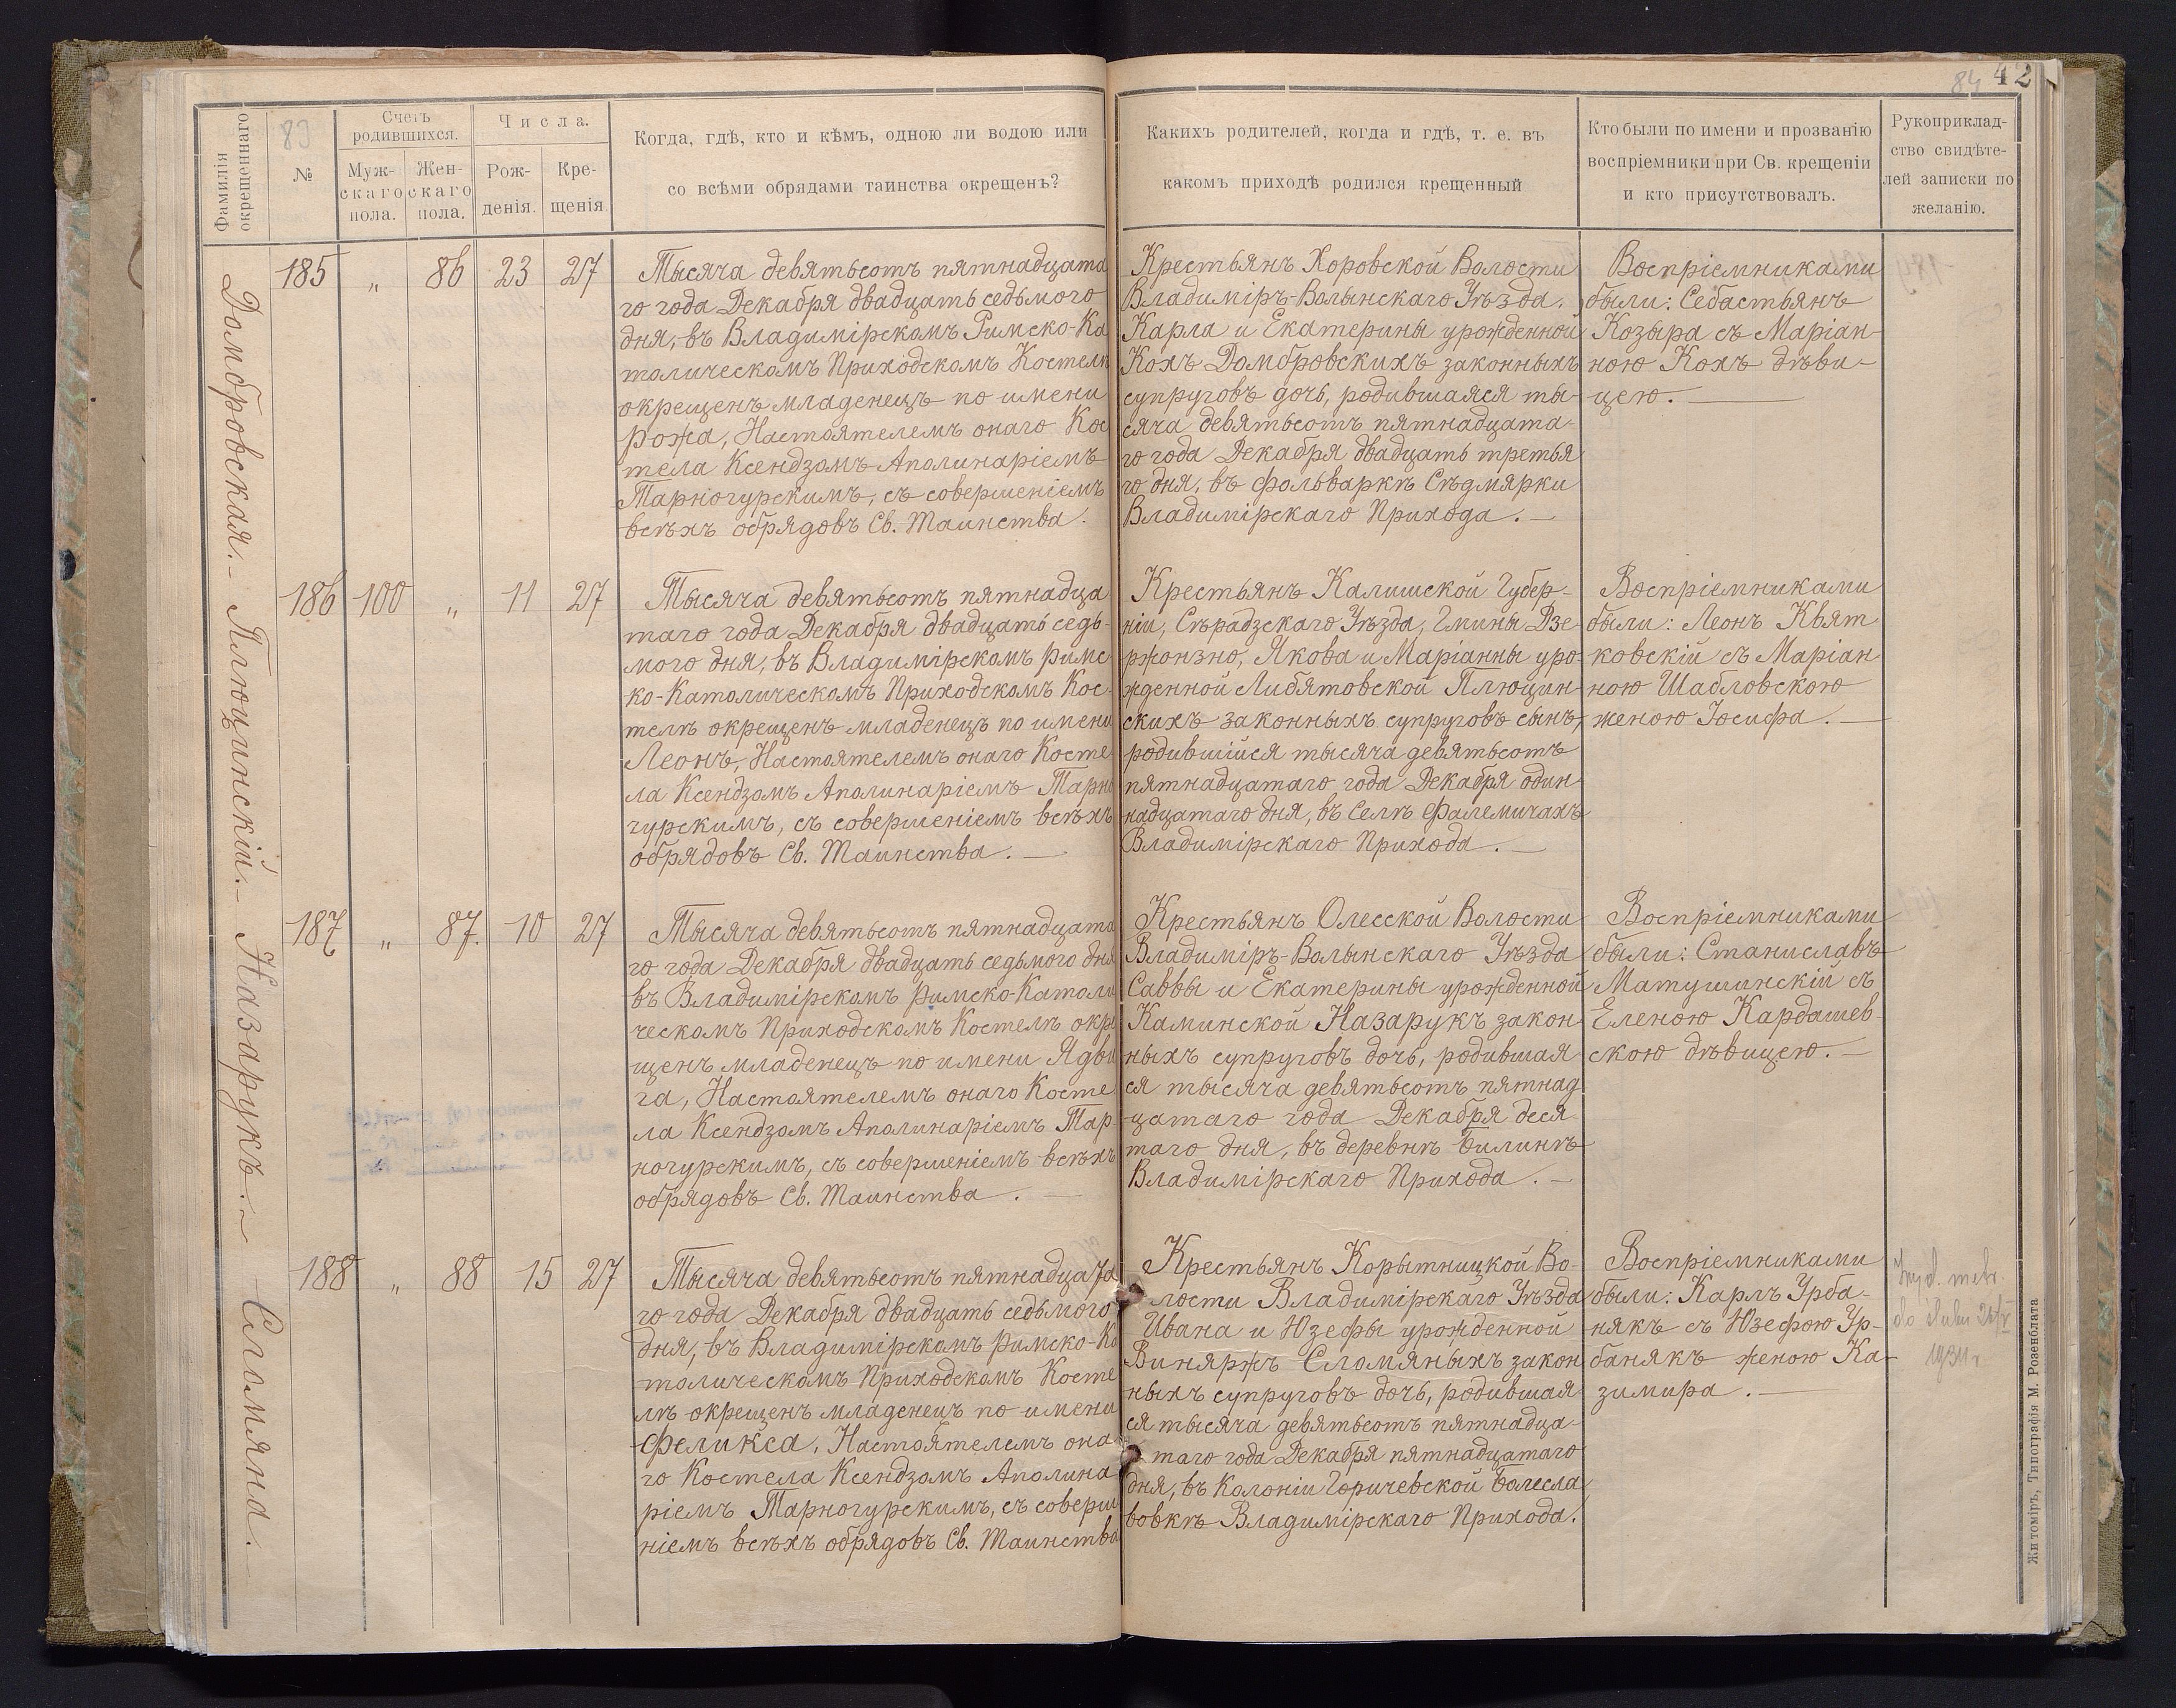 84 42
Фамилія
окрещеннаго
83
№
Счетъ
родившихся.
Муж-
скаго
пола.
Жен-
скаго
пола.
Числа.
Рож-
денія.
Кре-
щенія
Когда, гдѣ, кто и кѣмъ, одною ли водою или
со всѣми обрядами таинства окрещенъ?
Какихъ родителей, когда и гдѣ, т. е. въ
какомъ приходѣ родился крещенный
Кто были по имени и прозванію
воспріемники при Св. крещеніи
и кто присутствовалъ.
Рукоприклад-
ство свидѣте-
лей записки по
желанію.
Домбровская.-
185 „ 86 23 27
Тысяча девятьсотъ пятнадцата
го года Декабря двадцать седьмого
дня, въ Владимірскомъ Римско-Ка
толическомъ Приходскомъ Костелѣ
окрещенъ младенецъ по имени
Рожа, Настоятелемъ онаго Кос
тела Ксендзомъ Аполинаріемъ
Тарногурскимъ, съ совершеніемъ
всѣхъ обрядовъ Св. Таинства.
Крестьянъ Хоровской Волости
Владиміръ-Волынскаго Уѣзда.
Карла и Екатерины урожденной
Кохъ Домбровскихъ законныхъ
супруговъ дочь, родившаяся ты-
сяча девятьсотъ пятнадцата-
го года Декабря двадцать третья
го дня, въ фольваркѣ Сѣдмярки
Владимірскаго Прихода.
Воспріемниками
были: Себастьянъ
Козыра съ Маріан-
ною Кохъ дѣви-
цею.
Плюцинскій.-
186 100 „ 11 27
Тысяча девятьсотъ пятнадца
таго года Декабря двадцать седь-
мого дня, въ Владимірскомъ Римс-
ко-Католическомъ Приходскомъ Кос-
телѣ окрещенъ младенецъ по имени
Леонъ, Настоятелемъ онаго Косте
ла Ксендзомъ Аполинаріемъ Тарно
гурскимъ, съ совершеніемъ всѣхъ
обрядовъ Св. Таинства.
Крестьянъ Калишской Губер-
ніи, Сѣрадзскаго Уѣзда, Гмины Дзе-
ржонзно, Якова и Маріанны уро-
жденной Либятовской Плюцин-
скихъ законныхъ супруговъ сынъ,
родившійся тысяча девятьсотъ
пятнадцатаго года Декабря один-
надцатаго дня, въ селѣ Фалемичахъ
Владимірскаго Прихода.
Воспріемниками
были: Леонъ Квят
ковскій съ Маріан
ною Шабловскою
женою Іосифа.
Назарукъ.-
187 „ 87. 10 27
Тысяча девятьсотъ пятнадцата
го года Декабря двадцать седьмого дня
въ Владимірскомъ Римско-Католи
ческомъ Приходскомъ Костелѣ окре
щенъ младенецъ по имени Ядви
га, Настоятелемъ онаго Косте
ла Ксендзомъ Аполинаріемъ Тар-
ногурскимъ, съ совершеніемъ всѣхъ
обрядовъ Св. Таинства.
Крестьянъ Олесской Волости
Владиміръ-Волынскаго Уѣзда
Саввы и Екатерины урожденной
Каминской Назарукъ закон-
ныхъ супруговъ дочь, родившая
ся тысяча девятьсотъ пятнад
цатаго года Декабря деся-
таго дня, въ деревнѣ Билинѣ
Владимірскаго Прихода.
Воспріемниками
были: Станиславъ
Матушинскій съ
Еленою Кардашев-
скою дѣвицею.
Сломяна.
188 „ 88 15 27
Тысяча девятьсотъ пятнадцата
го года Декабря двадцать седьмого
дня, въ Владимірскомъ Римско-Ка
толическомъ Приходскомъ Косте
лѣ окрещенъ младенецъ по имени
Феликса, Настоятелемъ она
го Костела Ксендзомъ Аполина
ріемъ Тарногурскимъ, съ соверше
ніемъ всѣхъ обрядовъ Св. Таинства
Крестьянъ Корытницкой Во-
лости Владимірскаго Уѣзда
Ивана и Юзефы урожденной
Виняржъ Сломяныхъ закон
ныхъ супруговъ дочь, родившая-
ся тысяча девятьсотъ пятнадца-
таго года Декабря пятнадцатаго
дня, въ Колоніи Горичевской Болесла
вовкѣ Владимірскаго Прихода.
Воспріемниками
были: Карлъ Урба-
някъ съ Юзефою Ур-
банякъ женою Ка-
зимира.
Житоміръ, Типографія М. Розенблата